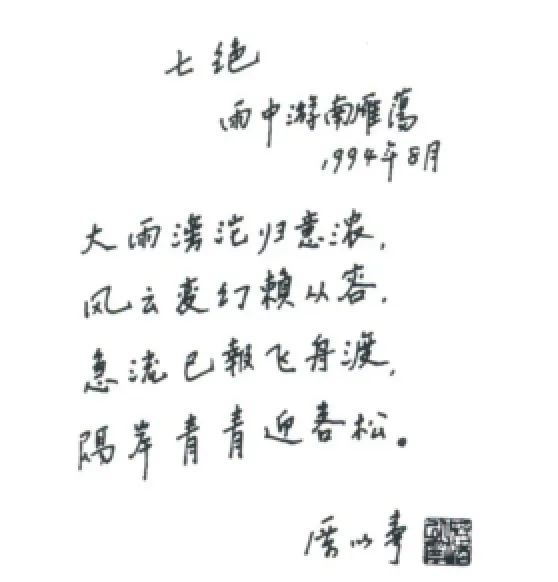 七绝
雨中游南雁蕩
1994年8月
大雨滂沱归意浓,
风云变幻賴从容,
急流已報飞舟渡,
隔岸青青迎春松。
厉以寧